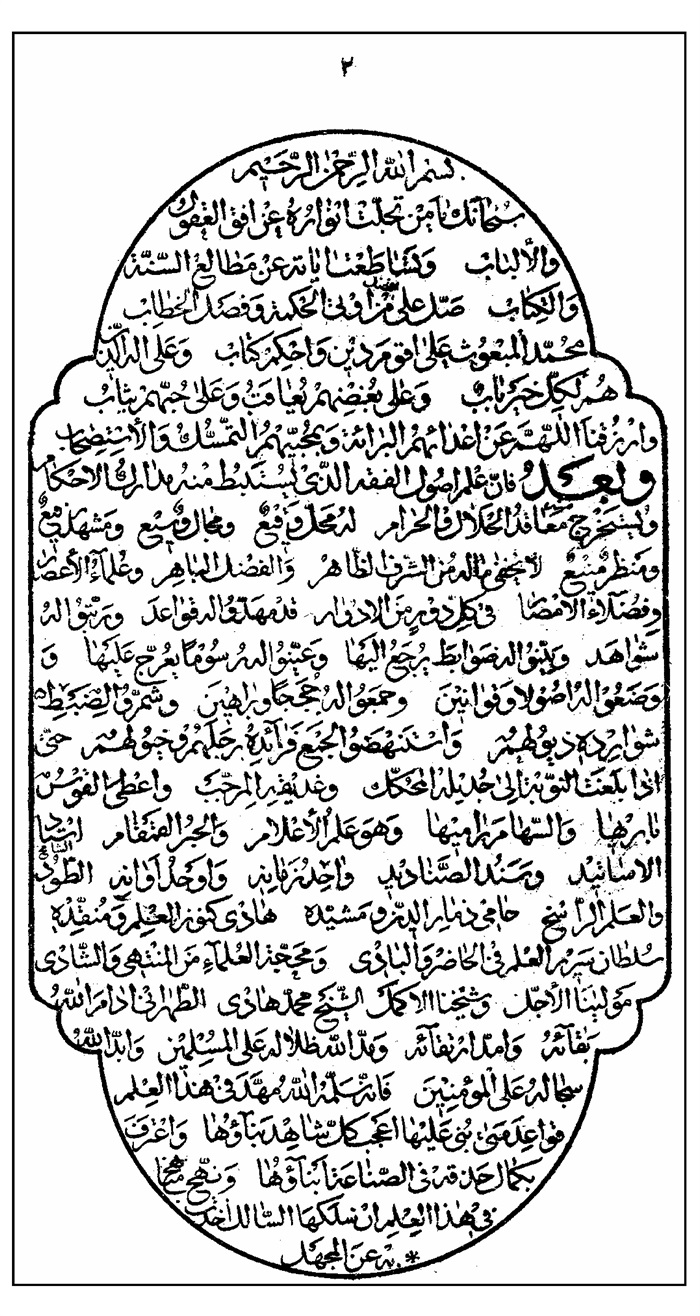 ٢
بسم الله الرحمن الرحيم
سبحانك يا من تجلت انواره عن افق العقول
والألباب وتشاطعت اياته عن مطالع السنة
والكتاب صل على من اوتى الحكمة وفصل الخطاب
محمد المبعوث على اقوم دين واحكم كتاب وعلى اله الذين
هم لكل خير باب وعلى بغضهم يعاقب وعلى حبهم يثاب
وارزقنا اللهم عن اعدائهم البرائة وبمحبيهم التمسك والاستصحاب
وبعد فان علم اصول الفقه الذى يستنبط منه مدارك الاحكام
ويستخرج معاقد الحلال والحرام له محل رفيع ومجال وسيع ومشهد
ومنظر منيع لا يخفى ماله من الشرف الظاهر والفضل الباهر وعلماء الأعصار
وفضلاء الأمصار فى كل دور من الادوار قد مهدوا له قواعد ورتبوا له
شواهد وبينوا له ضوابط يرجع اليها وعينوا له رسوما يعرج عليها و
وضعوا له اصولا وقوانين وجمعوا له حججا وبراهين وشمروا لضبط
شوارده ذيولهم واستنهضوا لجمع فرائده رجلهم وخيولهم حتى
اذا بلغت النوبة الى جذيله المحكك وعذيقه المرجب واعطى القوس
باريها والسهام راميها وهو علم الأعلام والحبر القمقام استاد
الاساتيد وسند الصناديد واحد زمانه واوحد اوانه الطود الشامخ
والعلم الراسخ حامى ذمار الدين ومشيده هادى كنوز العلم ومنقده
سلطان سرير العلم فى الحاضر والبادى ومحجة العلماء من المنتهى والشادى
مولينا الأجل وشيخنا الاكمل الشيخ محمد هادى الطهرانى ادام الله
بقائه وامد ارتقائه ومد الله ظلاله على المسلمين وابد الله
سجاله على المؤمنين فانه سلمه الله مهد فى هذا العلم
قواعد متى بنى عليها اعجب كل شاهد بناؤها واعترف
بكمال حذقه فى الصناعة ابناؤها ونهج منهجا
فى هذا العلم ان سلكها السالك اخذت
به عن المجهل *